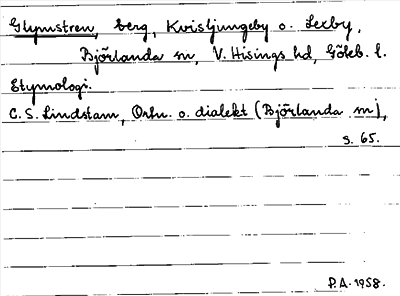 Glymstren, berg, Kvisljungeby o. Lexby,
Björlanda sn, V. Hisings hd, Göteb. l.
Etymologi.
C. S. Lindstam, Ortn. o. dialekt (Björlanda sn),
s. 65.
P.A. 1958.